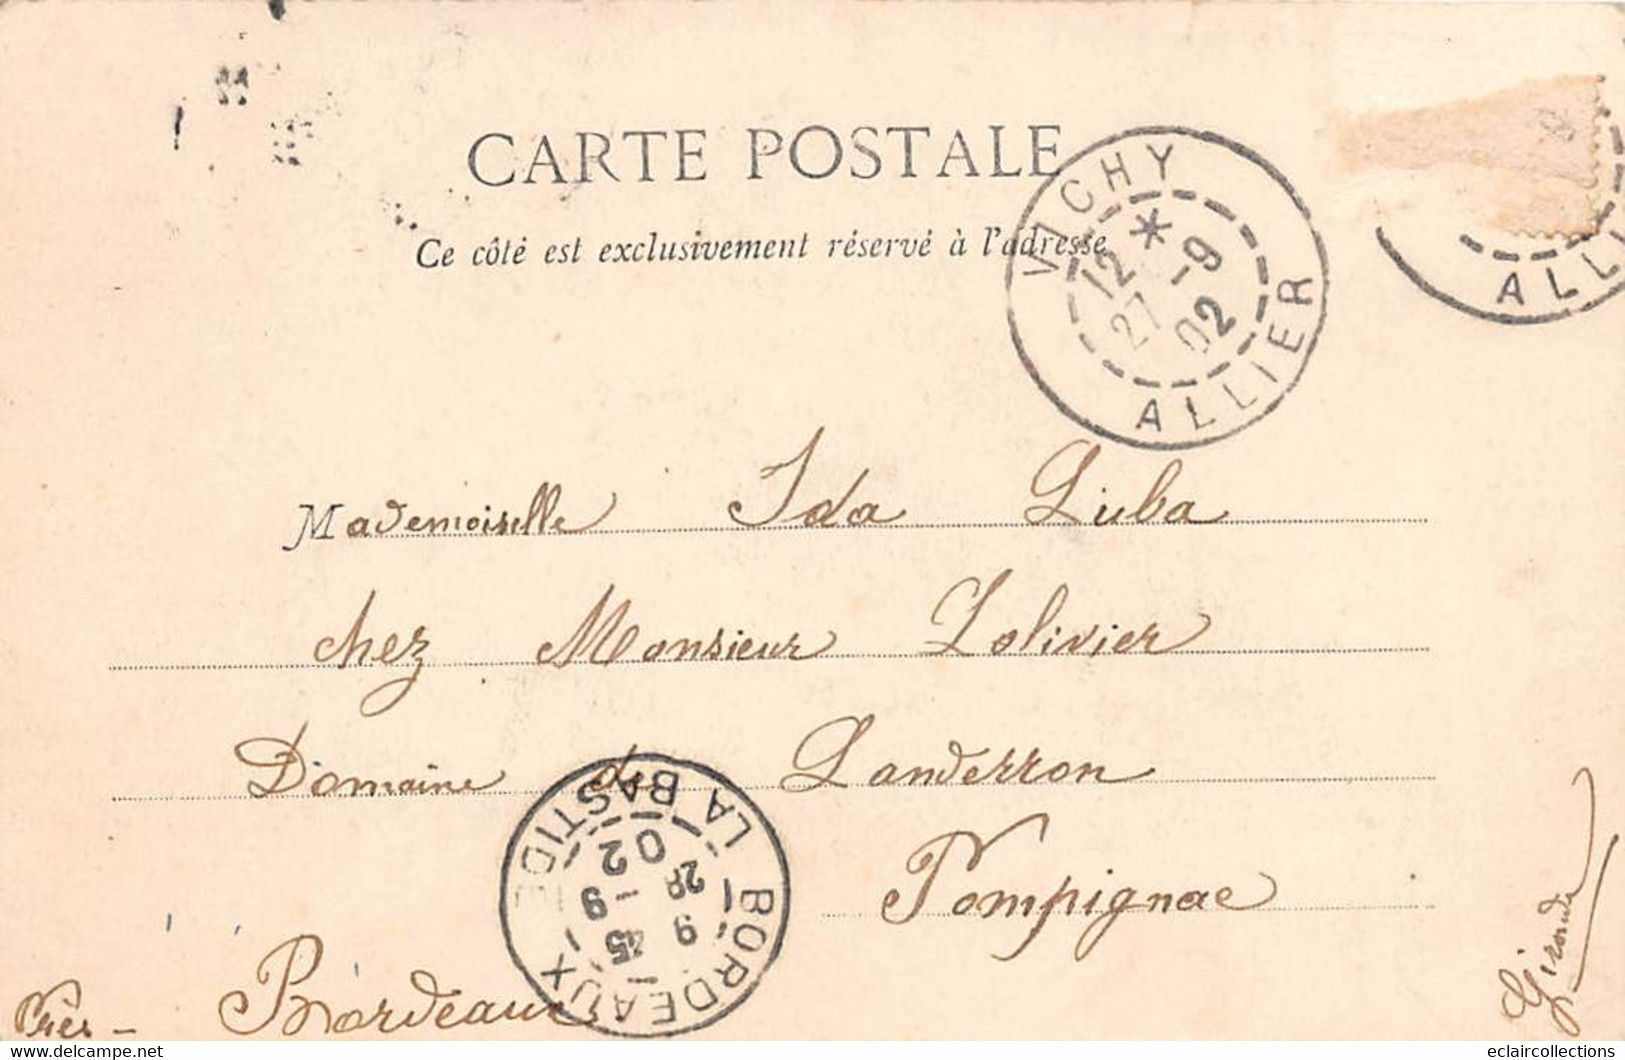 CARTE POSTALE
Ce côté est exclusivement réservé à l'adresse
VICHY
12 *
27 -9
02
ALLIER
ALLI
Mademoiselle Ida Luba
chez Monsieur Lolivier
Domaine de Landerron
Pompignac
Près - Bordeaux
Gironde
BORDEAUX LA BASTIDE
9 45
28 -9
02
eclaircollections